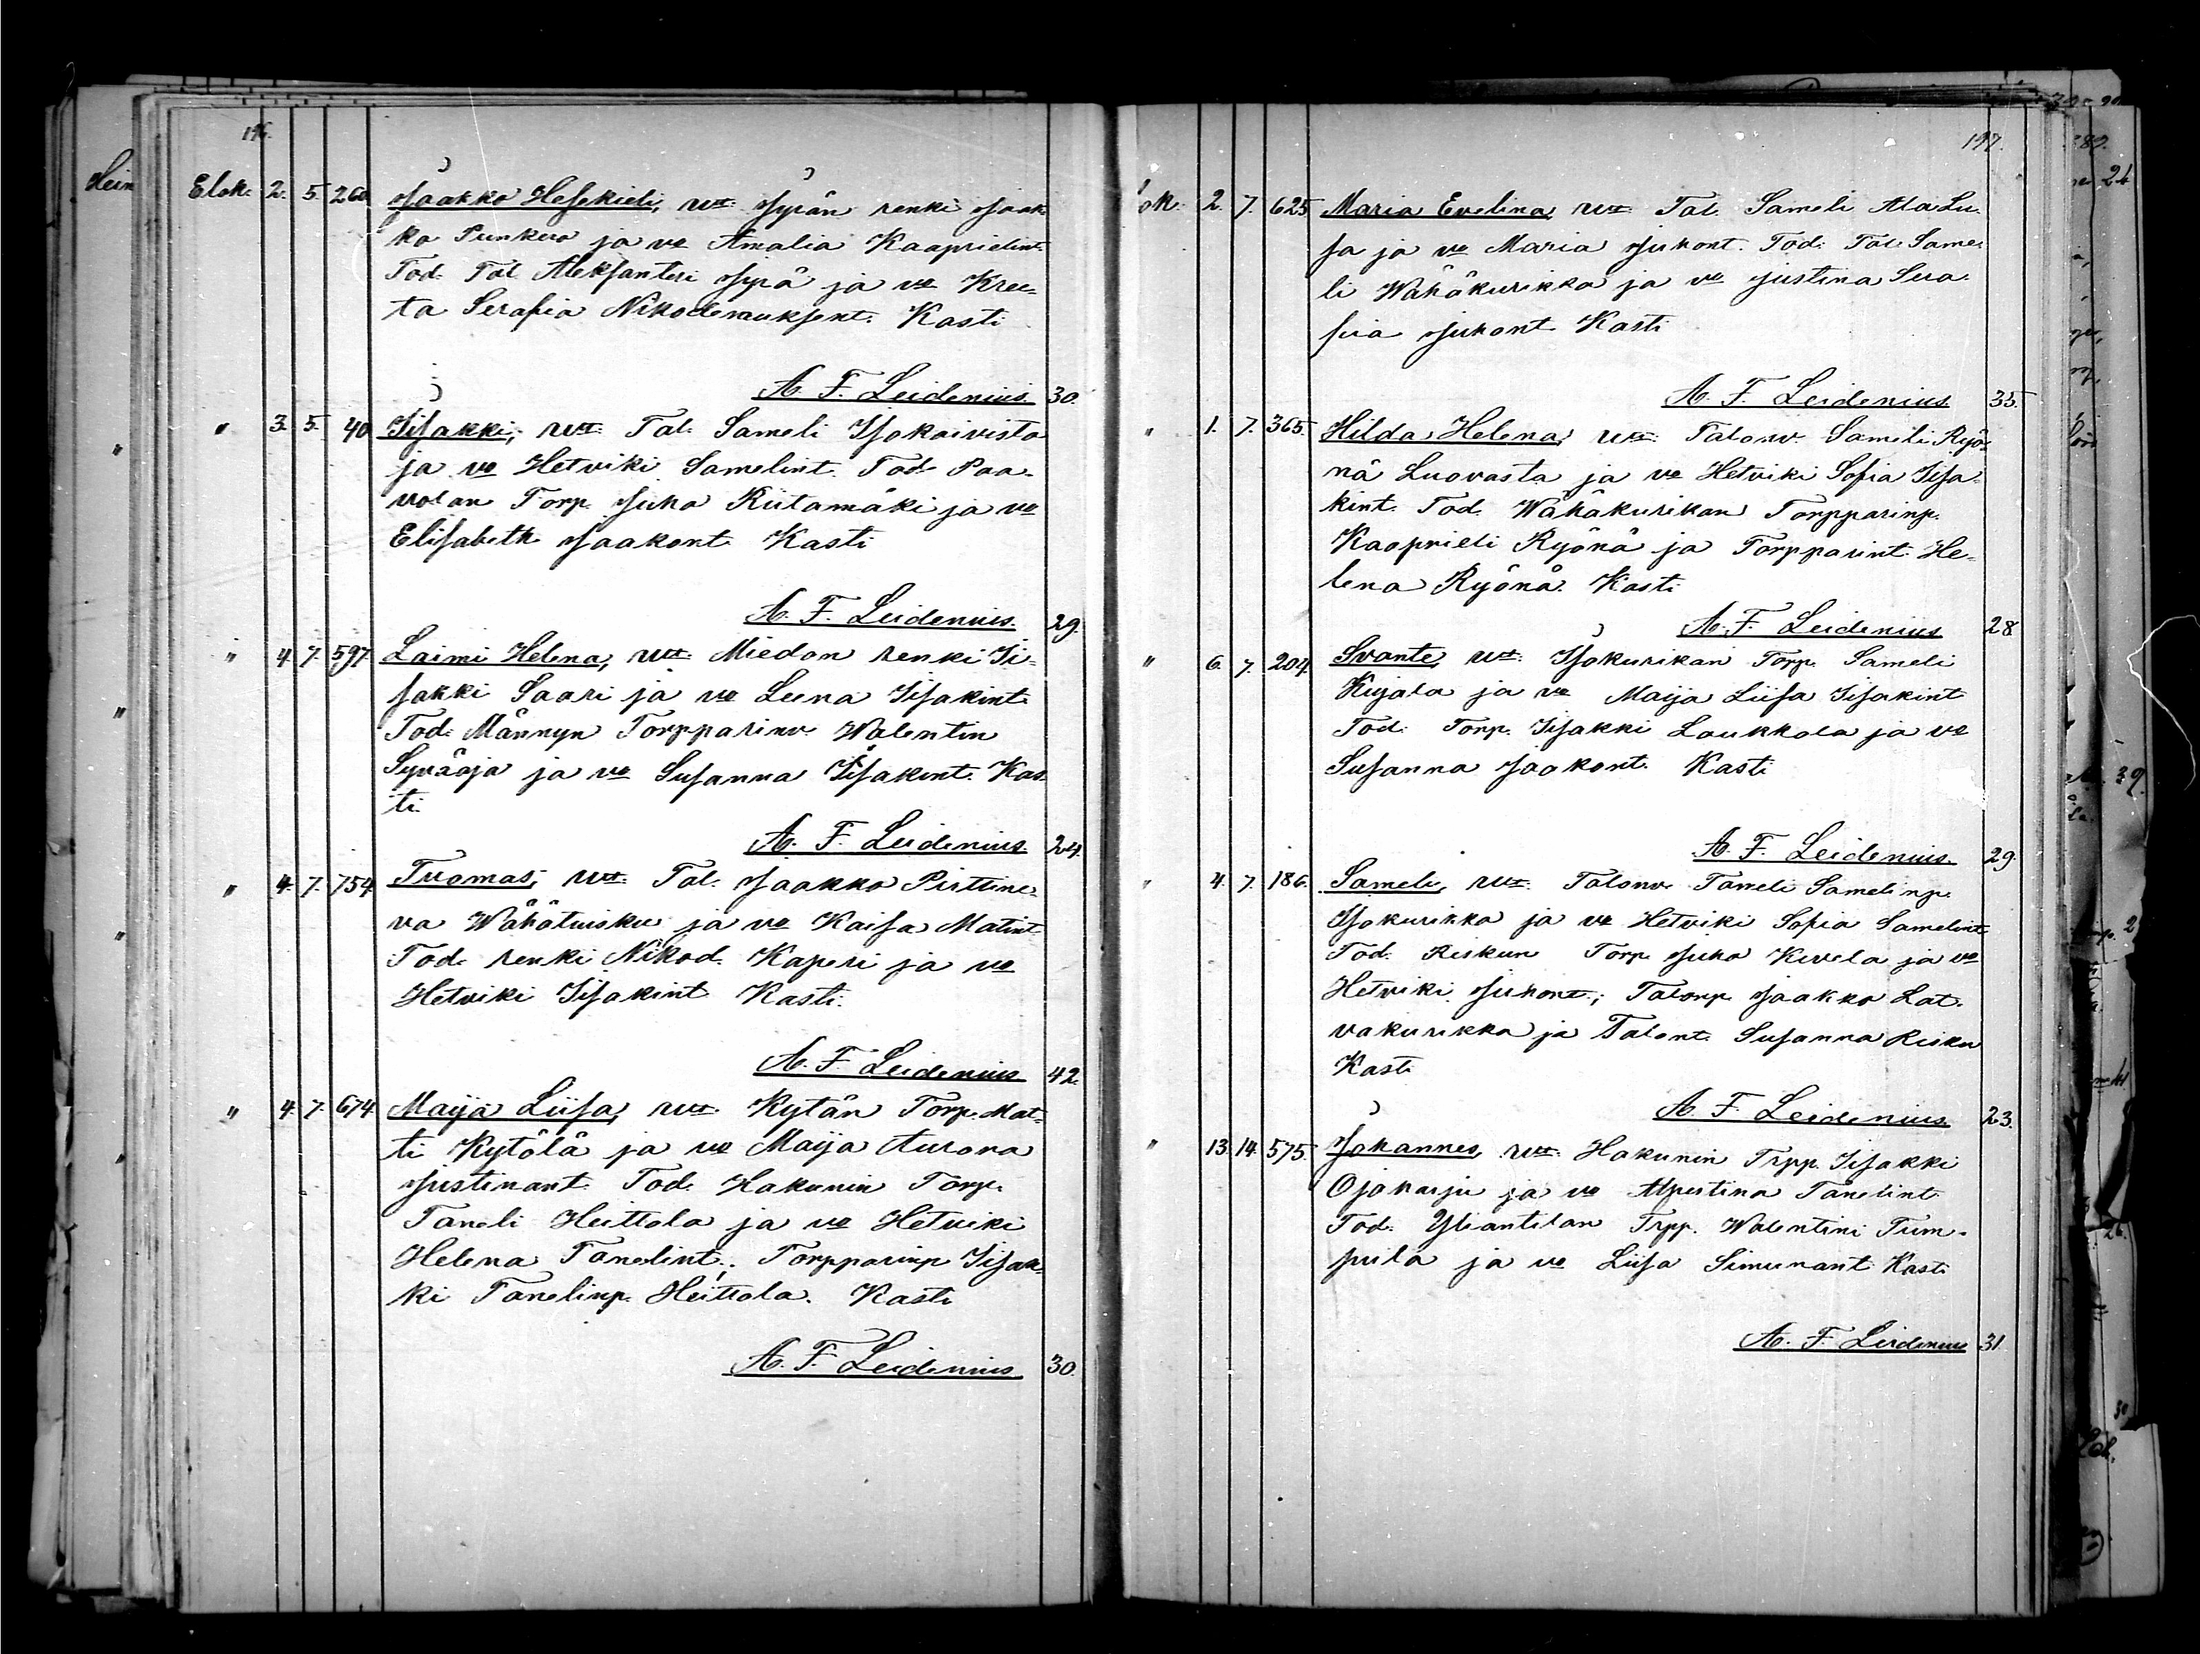 196.
Elok. 2. 5. 260 Jaakko Hesekieli, vt: Jyrän renki Jaak-
ko Punkero ja vo Amalia Kaaprielint.
Tod. Tal. Aleksanteri Jyrä ja vo Kree-
ta Serafia Nikodemuksent. Kasti
A. F. Leidenius. 30.
" 3. 5. 40 Iisakki, vt: Tal. Sameli Isokoivisto
ja vo Hetviki Samelint. Tod. Paa-
volan Torp. Juho Riitamäki ja vo
Elisabeth Jaakont. Kasti
A. F. Leidenius. 29.
" 4. 7. 597. Laimi Helena, vt: Miedon renki Ii-
sakki Saari ja vo Leena Iisakint.
Tod. Männyn Torpparinv. Walentin
Syväoja ja vo Susanna Iisakint. Kas-
ti.
A. F. Leidenius. 24.
" 4. 7. 754. Tuomas, vt: Tal. Jaakko Pirttine-
va Wähätuisku ja vo Kaisa Matint.
Tod. renki Nikod. Kaperi ja vo
Hetviki Iisakint Kasti.
A. F. Leidenius 42.
" 4. 7. 674. Maija Liisa, vt: Kytän Torp. Mat-
ti Kytölä ja vo Maija Aurora
Justinant. Tod. Hakunin Torp.
Taneli Heittola ja vo Hetviki
Helena Tanelint.; Torpparinp Iisak-
ki Tanelinp. Heittola. Kasti
A. F. Leidenius 30.
197.
ok. 2. 7. 625 Maria Evelina, vt: Tal. Sameli Ala Lu-
sa ja vo Maria Juhont. Tod. Tal. Same-
li Wähäkurikka ja vo Justina Sera-
fia Juhont Kasti
A. F. Leidenius 35.
" 1. 7. 365. Hilda Helena, vt: Talonv. Sameli Ryö-
nä Luovasta ja vo Hetviki Sofia Iisa-
kint. Tod. Wähäkurikan Torpparinp.
Kaaprieli Ryönä ja Torpparint. He-
lena Ryönä. Kasti
A. F. Leidenius 28
" 6. 7. 204. Svante, vt: Isokurikan Torp. Sameli
Kujala ja vo Maija Liisa Iisakint
Tod. Torp. Iisakki Laukkola ja vo
Susanna Jaakont. Kasti
A. F. Leidenius. 29.
" 4. 7. 186. Sameli, vt: Talonv. Taneli Samelinp.
Isokurikka ja vo Hetviki Sofia Samelint.
Tod. Riskun Torp. Juho Kivela ja vo
Hetviki Juhont.; Talonp. Jaakko Lat-
vakurikka ja Talont. Susanna Risku
Kasti
A. F. Leidenius 23.
" 13. 14. 575. Johannes, vt: Hakunin Trpp. Iisakki
Ojaharju ja vo Alpertina Tanelint.
Tod. Yliantilan Trpp. Walentini Tum-
pula ja vo Liisa Simunant Kasti
A. F. Leidenius 31